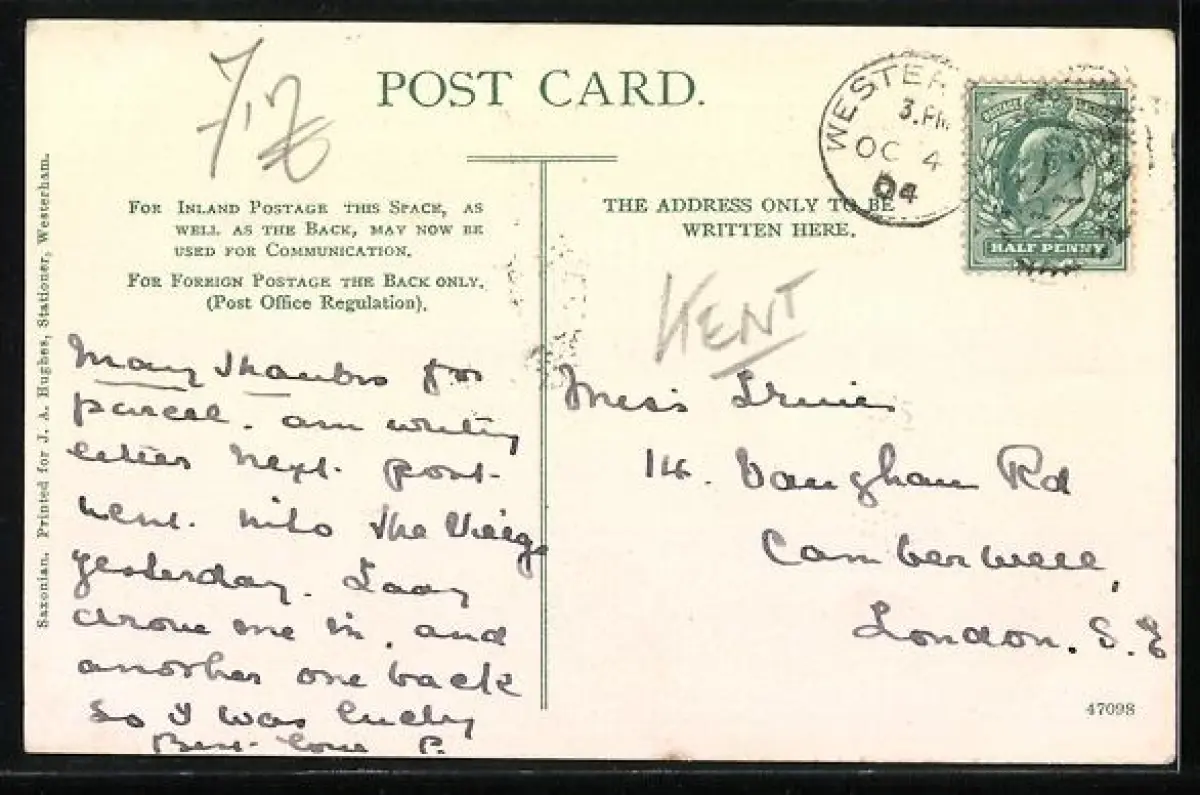 POST CARD.
WESTER
3.PM
OC 4
04
HALF PENNY
FOR INLAND POSTAGE THIS SPACE, AS
WELL AS THE BACK, MAY NOW BE
USED FOR COMMUNICATION.
FOR FOREIGN POSTAGE THE BACK ONLY.
(Post Office Regulation).
THE ADDRESS ONLY TO BE
WRITTEN HERE.
KENT
Many thanks for
parcel. am writing
letter next post-
went into the Village
yesterday. Lady
drove me in, and
another one back
so I was lucky
Best love P.
Miss
14. Vaughan Rd
Camberwell,
London. S.E
47098
Saxonian. Printed for J. A. Hughes, Stationer, Westerham.